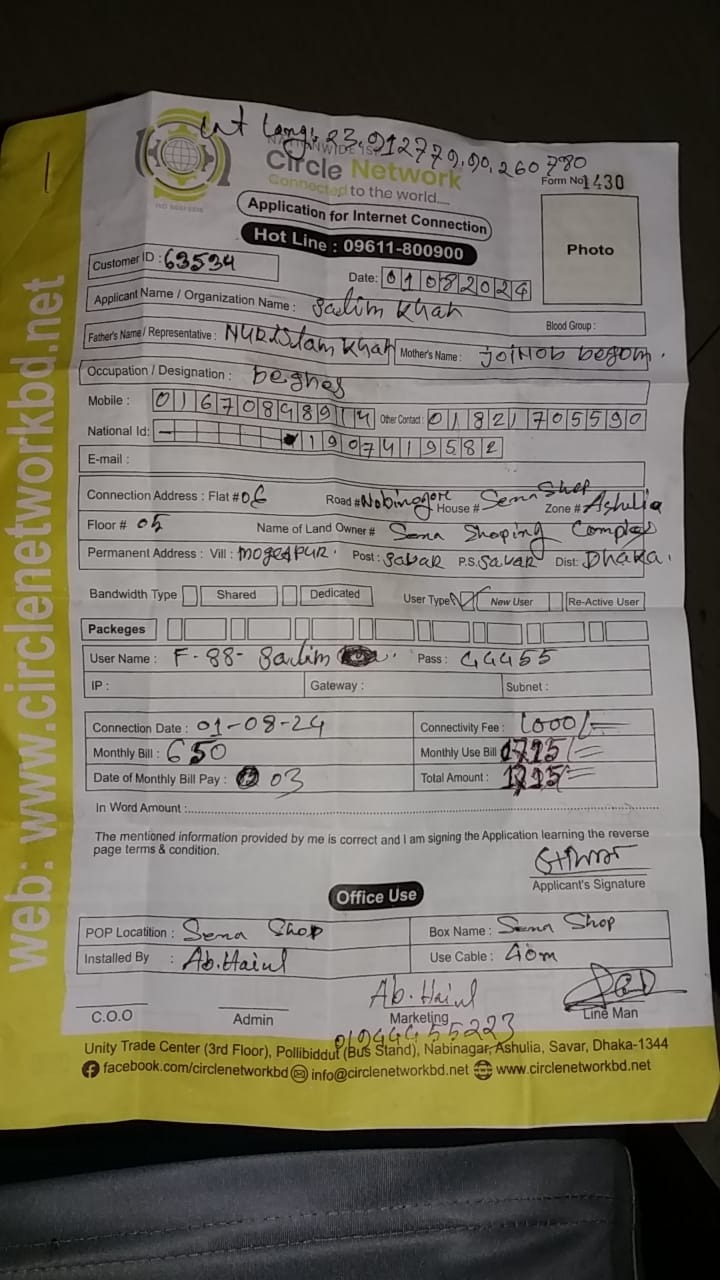 Lat Long: 23.912779, 90.260780
NATIONWIDE ISP
Circle Network
Connected to the world....
ISO 9001:2015
Form No 1430
Application for Internet Connection
Hot Line : 09611-800900
Photo
Customer ID : 63534
Date: 01082024
Applicant Name / Organization Name : Salim Khan
Blood Group :
Father's Name / Representative : NURISlam Khan Mother's Name : joiNob begom.
Occupation / Designation :
Mobile : 01670898914 Other Contact : 01821705590
National Id: 1907419582
E-mail :
Connection Address : Flat # 06 Road # Nobinogore House # Sena Shop Zone # Ashulia
Floor # 05 Name of Land Owner # Sena Shoping Complex
Permanent Address : Vill : Post : Savar P.S. SavaR Dist: DHaka.
Bandwidth Type Shared Dedicated User Type New User Re-Active User
Packeges
User Name : F-88-Salim Pass : 44455
IP : Gateway : Subnet :
Connection Date : 01-08-24 Connectivity Fee : 1000/=
Monthly Bill : 650 Monthly Use Bill
Date of Monthly Bill Pay : 03 Total Amount :
In Word Amount :
The mentioned information provided by me is correct and I am signing the Application learning the reverse
page terms & condition.
Applicant's Signature
Office Use
POP Locatition : Sena Shop Box Name : Sena Shop
Installed By : Ab. Haiul Use Cable : 40m
Ab. Haiul
C.O.O Admin Marketing Line Man
01944455223
Unity Trade Center (3rd Floor), Pollibiddut (Bus Stand), Nabinagar, Ashulia, Savar, Dhaka-1344
facebook.com/circlenetworkbd info@circlenetworkbd.net www.circlenetworkbd.net
web: www.circlenetworkbd.net